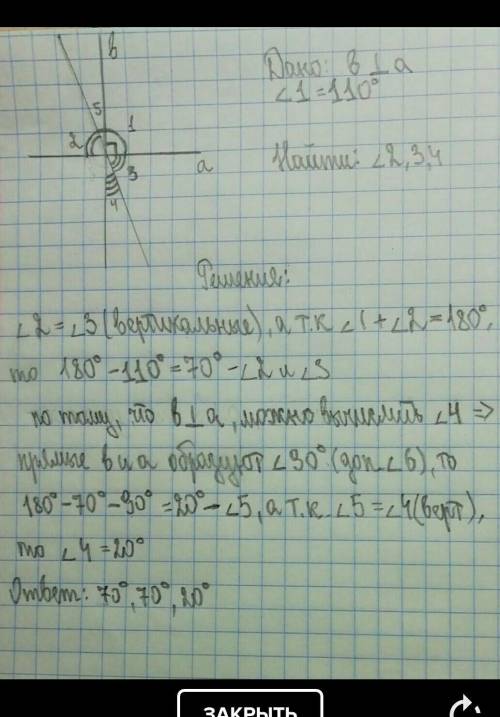 в
Дано: в ⊥ а
∠1=110°
5
2
1
а
3
4
Найти: ∠2,3,4
Решения:
∠2=∠3(вертикальные), а т.к ∠1+∠2=180°,
то 180°-110°=70°-∠2 и ∠3
по тому, что в⊥а, можно вычислить ∠4 =>
прямые в и а образуют ∠90° (доп ∠6), то
180°-70°-90°=20°-∠5, а т.к. ∠5=∠4(верт),
то ∠4=20°
Ответ: 70°, 70°, 20°
ЗАКРЫТЬ